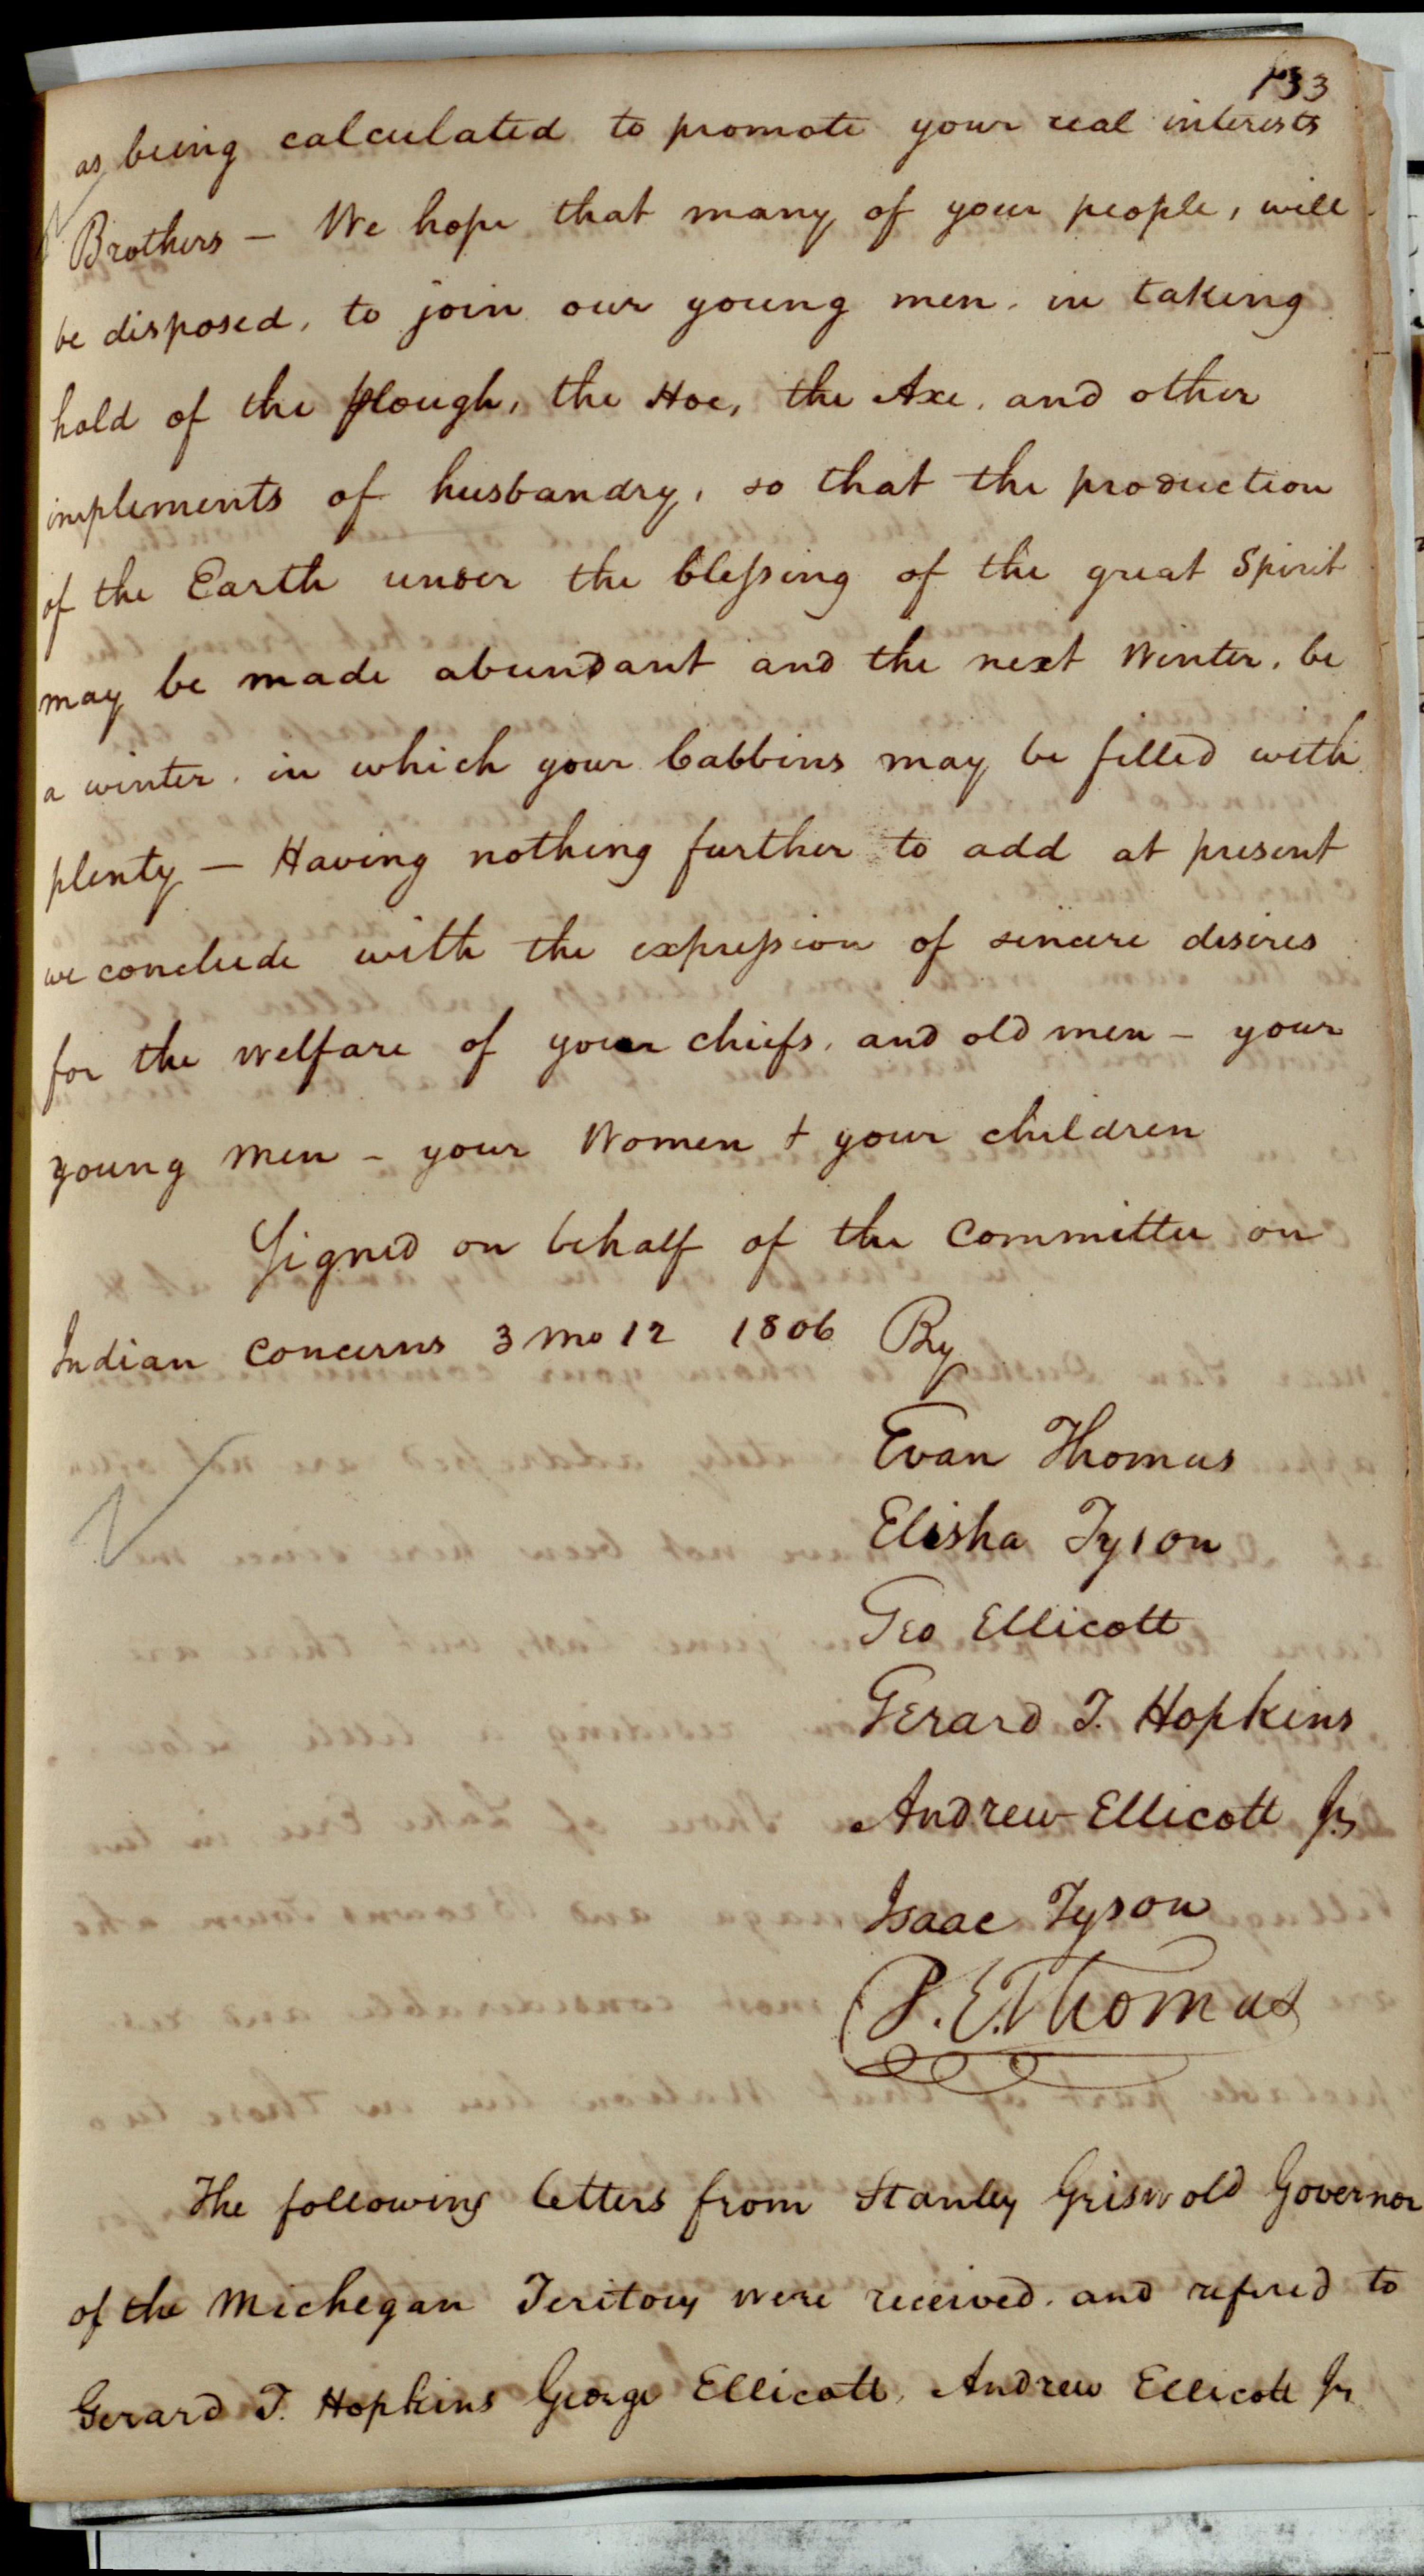 133
as being calculated to promote your real interests
Brothers — We hope that many of your people, will
be disposed, to join our young men, in taking
hold of the plough, the Hoe, the Axe, and other
implements of husbandry, so that the production
of the Earth under the blessing of the great Spirit
may be made abundant and the next Winter, be
a winter, in which your Cabbins may be filled with
plenty — Having nothing further to add at present
we conclude with the expression of sincere desires
for the welfare of your chiefs, and old men — your
young men — your Women + your children
Signed on behalf of the Committee on
Indian Concerns 3 mo 12 1806 By
Evan Thomas
Elisha Tyson
Geo Ellicott
Gerard T. Hopkins
Andrew Ellicott Jr
Isaac Tyson
P. E. Thomas
The following letters from Stanley Griswold Governor
of the Michegan Teritory were received, and refered to
Gerard T. Hopkins George Ellicott, Andrew Ellicott Jr